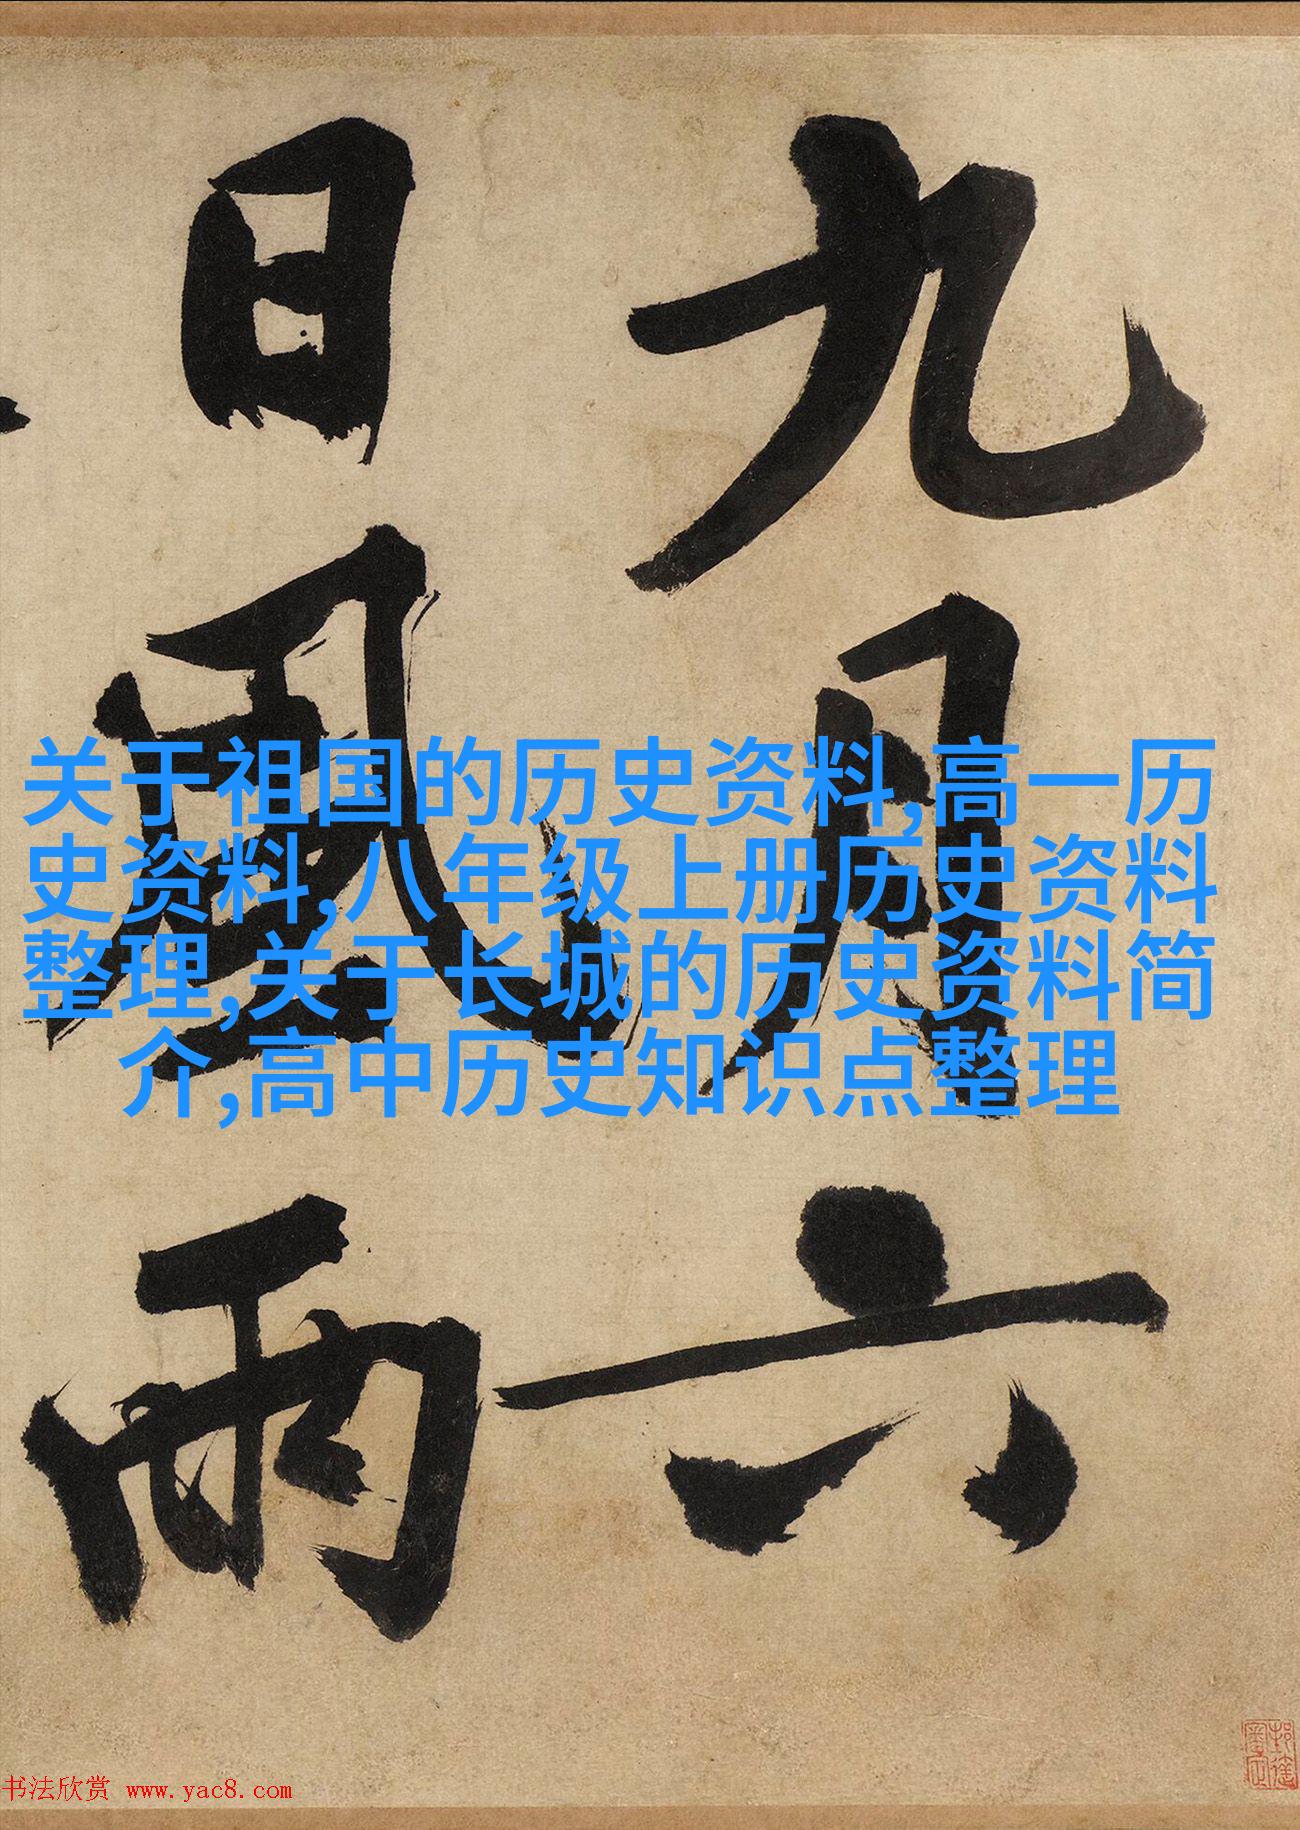 九月六
日風雨
关于祖国的历史资料,高一历
史资料,八年级上册历史资料
整理,关于长城的历史资料简
介,高中历史知识点整理
书法欣赏 www.yac8.com